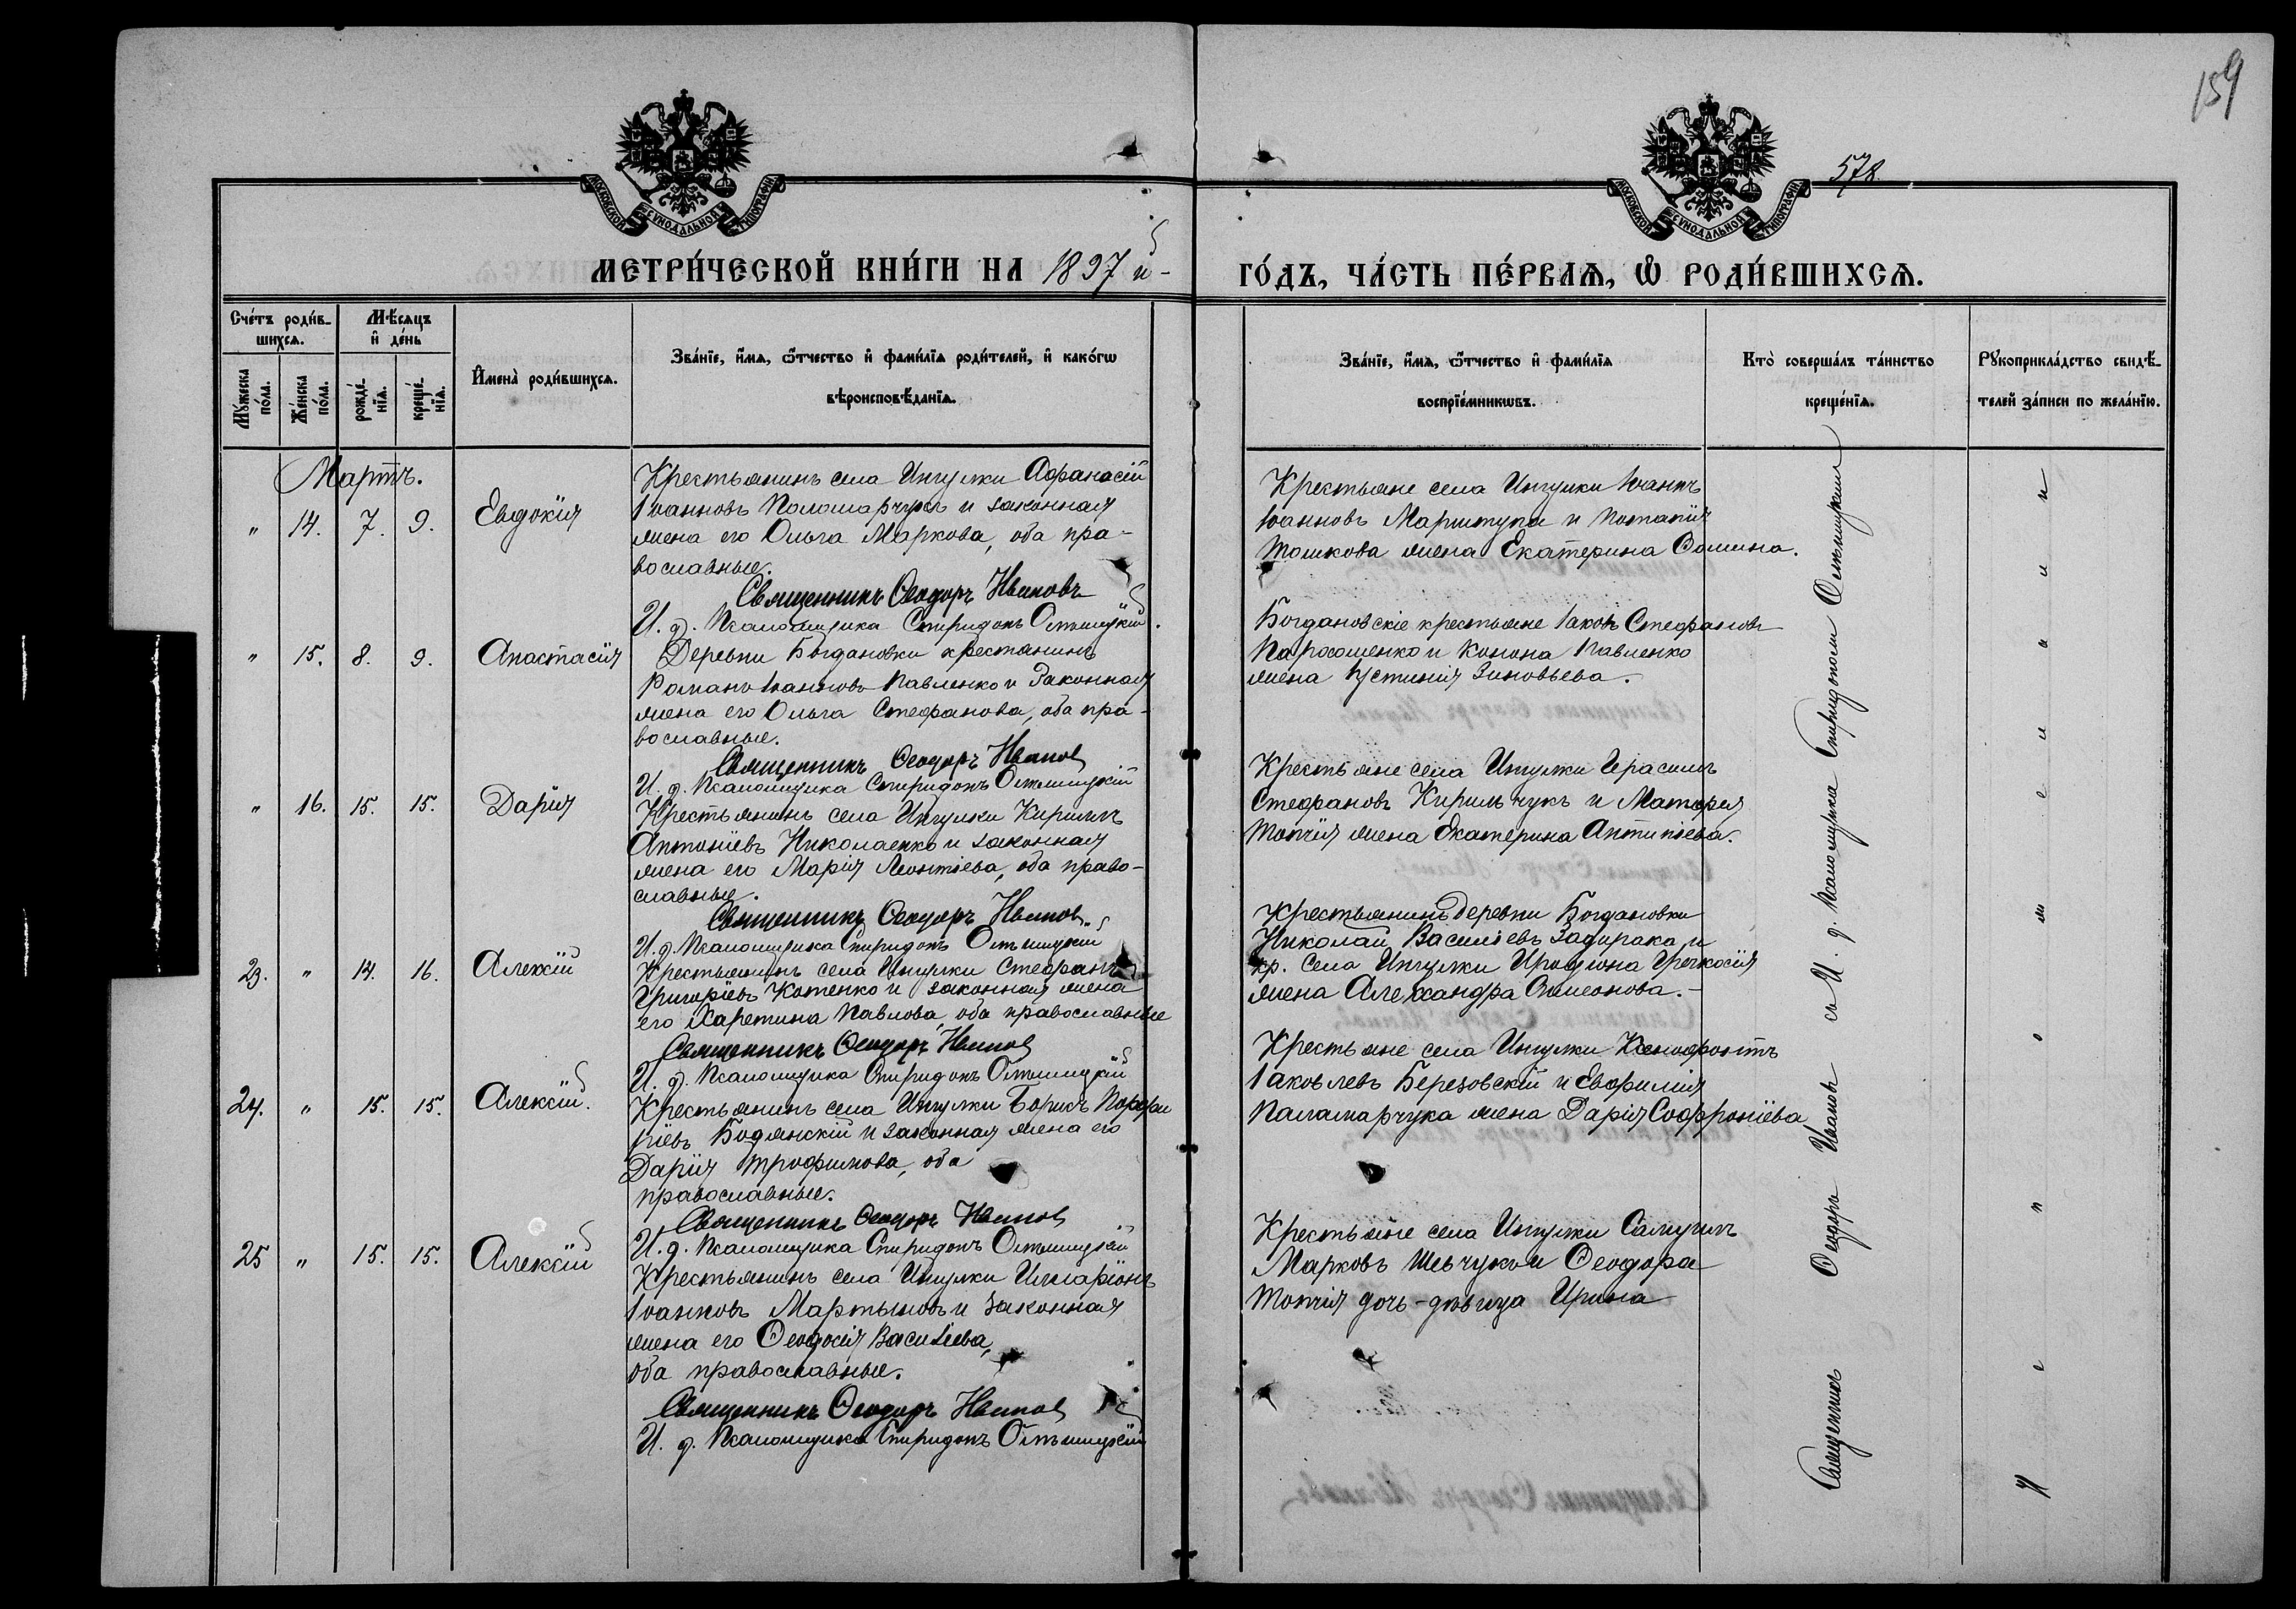 159
578.
МОСКОВСКОЙ СѴНОДАЛЬНОЙ ТИПОГРАФІИ
МОСКОВСКОЙ СѴНОДАЛЬНОЙ ТИПОГРАФІИ
МЕТРИ́ЧЕСКОЙ КНИ́ГИ НА 1897 й
ГО́ДЪ, ЧА́СТЬ ПЕ́РВАѦ, Ѽ РОДИ́ВШИХСѦ.
Сче́тъ роди́в-
шихсѧ.
Мꙋ́жеска по́ла.
Же́нска по́ла.
Мѣ́сѧцъ и҆ де́нь
рожде́-нїѧ.
креще́-нїѧ.
И҆мена̀ роди́вшихсѧ.
Зва́нїе, и҆́мѧ, ѻ҆́тчество и҆ фами́лїѧ роди́телей, и҆ како́гѡ
вѣроисповѣ́данїѧ.
Зва́нїе, и҆́мѧ, ѻ҆́тчество и҆ фами́лїѧ
воспрїе́мникѡвъ.
Кто̀ соверша́лъ та́инство
креще́нїѧ.
Рꙋкоприкла́дство свидѣ́-
телей за́писи по жела́нїю.
Мартъ.
" 14. 7. 9. Евдокія
Крестьянинъ села Ингулки Афанасій
Іоанновъ Паламарчукъ и законная
жена его Ольга Маркова, оба пра-
вославные.
Священникъ Ѳеодоръ Ивановъ
И. д. Псаломщика Спиридонъ
Крестьяне села Ингулки Іоаннъ
Іоанновъ и
жена Екатерина Ѳомина.
" 15. 8. 9. Анастасія
Деревни Богдановки крестьянинъ
Романъ Іоанновъ Павленко и законная
жена его Ольга Стефанова, оба пра-
вославные.
Священникъ Ѳеодоръ Ивановъ
И. д. Псаломщика Спиридонъ
Богдановскіе крестьяне Іаковъ Стефановъ
и Конона Павленко
жена Іустинія Зиновьева.
" 16. 15. 15. Дарія
Крестьянинъ села Ингулки Кириллъ
Антоніевъ Николаенко и законная
жена его Марія Леонтіева, оба право-
славные.
Священникъ Ѳеодоръ Ивановъ
И. д. Псаломщика Спиридонъ
Крестьяне села Ингулки Герасимъ
Стефановъ Кирильчукъ и
Топчія жена Екатерина Антипіева.
23. " 14. 16. Алексій
Крестьянинъ села Ингулки Стефанъ
Григоріевъ Котенко и законная жена
его Харетина Павлова, оба православные
Священникъ Ѳеодоръ Ивановъ
И. д. Псаломщика Спиридонъ
Крестьянинъ деревни Богдановки
Николай Василіевъ Задирака и
кр. села Ингулки Иродіона
жена Александра Симеонова.
24. " 15. 15. Алексій.
Крестьянинъ села Ингулки Борисъ Порфи
ріевъ Бодянскій и законная жена его
Дарія Трофимова, оба
православные.
Священникъ Ѳеодоръ Ивановъ
И. д. Псаломщика Спиридонъ
Крестьяне села Ингулки Ксенофонтъ
Іаковлевъ Березовскій и Евфимія
Паламарчука жена Дарія Софроніева
25 " 15. 15. Алексій
Крестьянинъ села Ингулки Илларіонъ
Іоанновъ Мартыновъ и законная
жена его Ѳеодосія Василіева,
оба православные.
Священникъ Ѳеодоръ Ивановъ
И. д. Псаломщика Спиридонъ
Крестьяне села Ингулки Самуилъ
Марковъ Шевчукъ и Ѳеодора
Топчія дочь-дѣвица Ирина
Священникъ Ѳеодоръ Ивановъ съ И. д. Псаломщика Спиридономъ